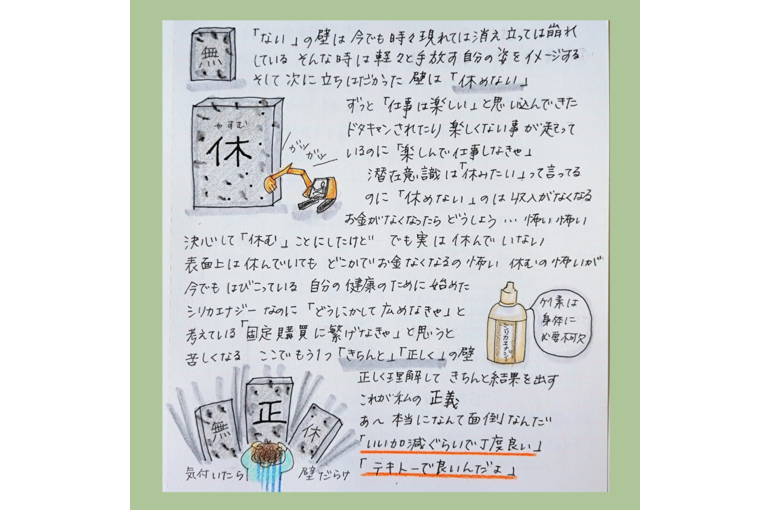 無
「ない」の壁は今でも時々現れては消え 立っては崩れ
している そんな時は軽々と手放す自分の姿をイメージする
そして次に立ちはだかった壁は「休めない」
やすむ
休
ガッ
ガッ
ずっと「仕事は楽しい」と思い込んできた
ドタキャンされたり 楽しくない事が起こって
いるのに「楽しんで仕事しなきゃ」
潜在意識は「休みたい」って言ってる
のに「休めない」のは収入がなくなる
お金がなくなったらどうしよう…怖い怖い
決心して「休む」ことにしたけど でも実は休んでいない
表面上は休んでいても どこかでお金なくなるの怖い 休むの怖いが
今でもはびこっている 自分の健康のために始めた
シリカエナジーなのに「どうにかして広めなきゃ」と
考えている「固定購買に繋げなきゃ」と思うと
苦しくなる ここでもう1つ「きちんと」「正しく」の壁
シリカエナジー
ケイ素は
身体に
必要不可欠
正しく理解して きちんと結果を出す
これが私の正義
あ〜本当になんて面倒なんだ
「いい加減ぐらいで丁度良い」
「テキトーで良いんだよ」
無
正
休
気付いたら 壁だらけ